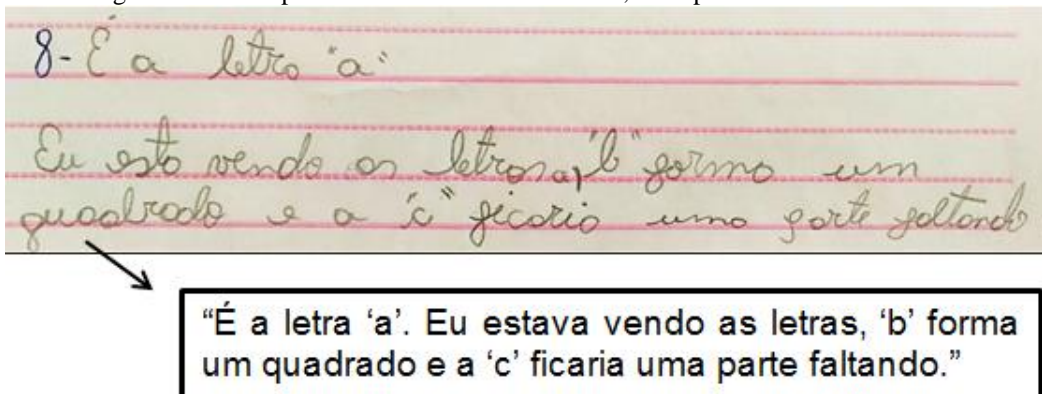 8- É a letra "a"
Eu esto vendo as letras a, "b" forma um
quadrado e a "c" ficaria uma parte faltando
“É a letra ‘a’. Eu estava vendo as letras, ‘b’ forma
um quadrado e a ‘c’ ficaria uma parte faltando.”